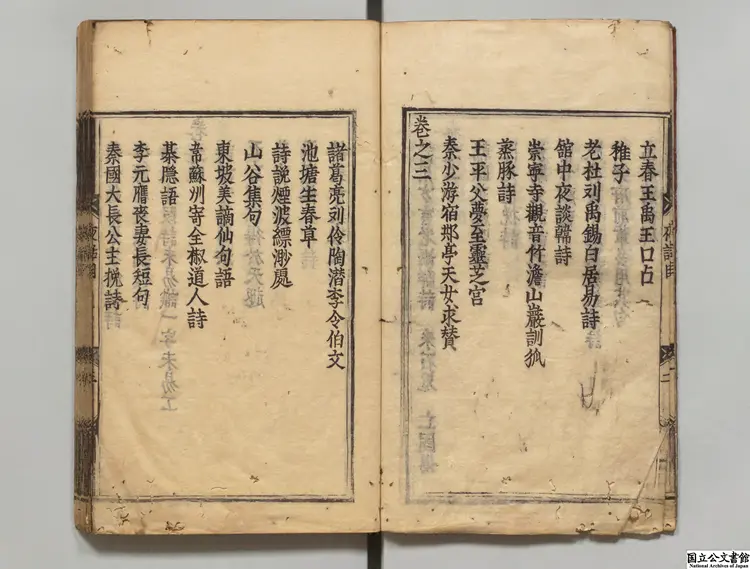 立春王禹王口占
稚子
老杜刘禹錫白居易詩
舘中夜談韓詩
崇寧寺觀音竹澹山巖訓狐
蒸豚詩
王平父夢至靈芝宮
秦少游宿郍亭天女求賛
卷之三
諸葛亮刘伶陶潜李令伯文
池塘生春草
詩說煙波縹渺處
山谷集句
東坡美謫仙句語
韋蘇州寄全椒道人詩
棊隠語
李元膺喪妻長短句
秦國大長公主挽詩
国立公文書館
National Archives of Japan